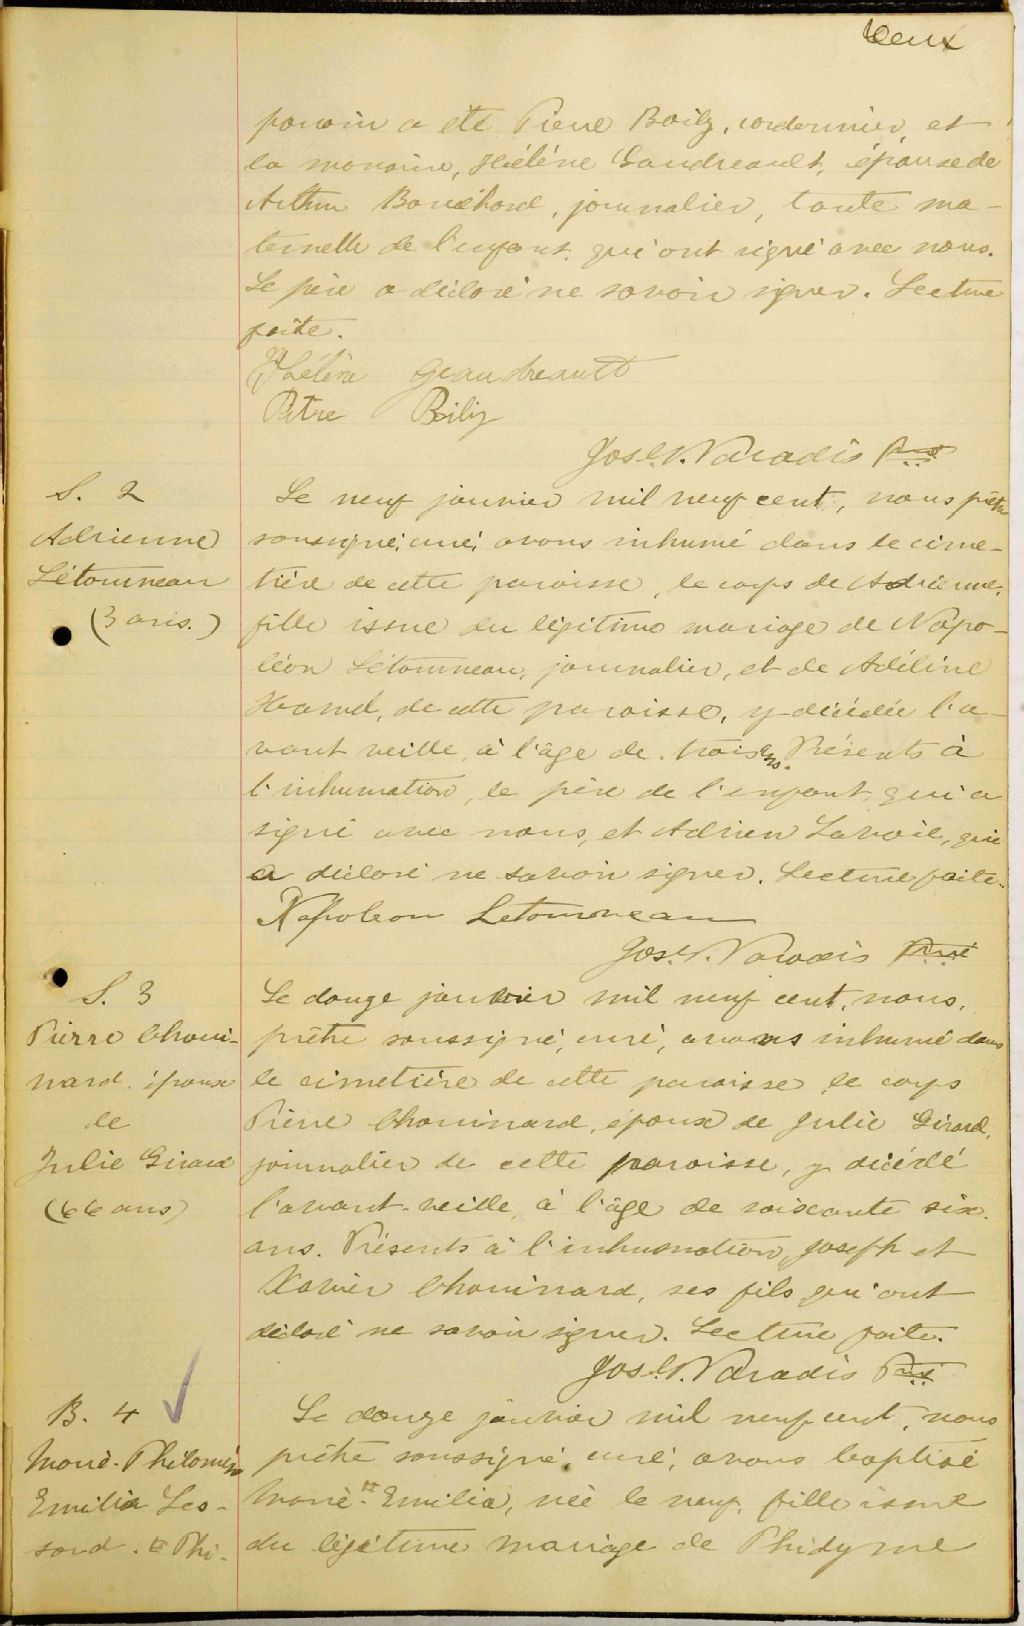 deux
parrain a été Pierre Boily, cordonnier, et
la marraine, Hélène Gaudreault, épouse de
Arthur Bouchard, journalier, tante ma-
ternelle de l'enfant, qui ont signé avec nous.
Le père a déclaré ne savoir signer. Lecture
faite.
Hélène Gaudreault
Pitre Boily
Jos. Paradis Ptre
S. 2
Adrienne
Létourneau
(3 ans.)
Le neuf janvier mil neuf cent, nous prêtre
soussigné, curé, avons inhumé dans le cime-
tière de cette paroisse, le corps de Adrienne,
fille issue du légitime mariage de Napo-
léon Létourneau, journalier, et de Adéline
Hamel, de cette paroisse, y décédée l'a-
vant veille, à l'âge de trois ans. Présents à
l'inhumation, le père de l'enfant, qui a
signé avec nous, et Adrien Lavoie, qui
a déclaré ne savoir signer. Lecture faite.
Napoleon Letourneau
Jos. Paradis Ptre
S. 3
Pierre Choui-
nard, époux
de
Julie Girard
(66 ans)
Le douze janvier mil neuf cent, nous,
prêtre soussigné, curé, avons inhumé dans
le cimetière de cette paroisse le corps
Pierre Chouinard, époux de Julie Girard,
journalier de cette paroisse, y décédé
l'avant-veille, à l'âge de soixante six
ans. Présents à l'inhumation, Joseph et
Xavier Chouinard, ses fils qui ont
déclaré ne savoir signer. Lecture faite.
Jos. Paradis Ptre
B. 4
Marie-Philomène
Emilia Les-
sard. Phi-
Le douze janvier mil neuf cent, nous
prêtre soussigné, curé, avons baptisé
Marie- Emilia, née le neuf, fille issue
du légitime mariage de Phidyme